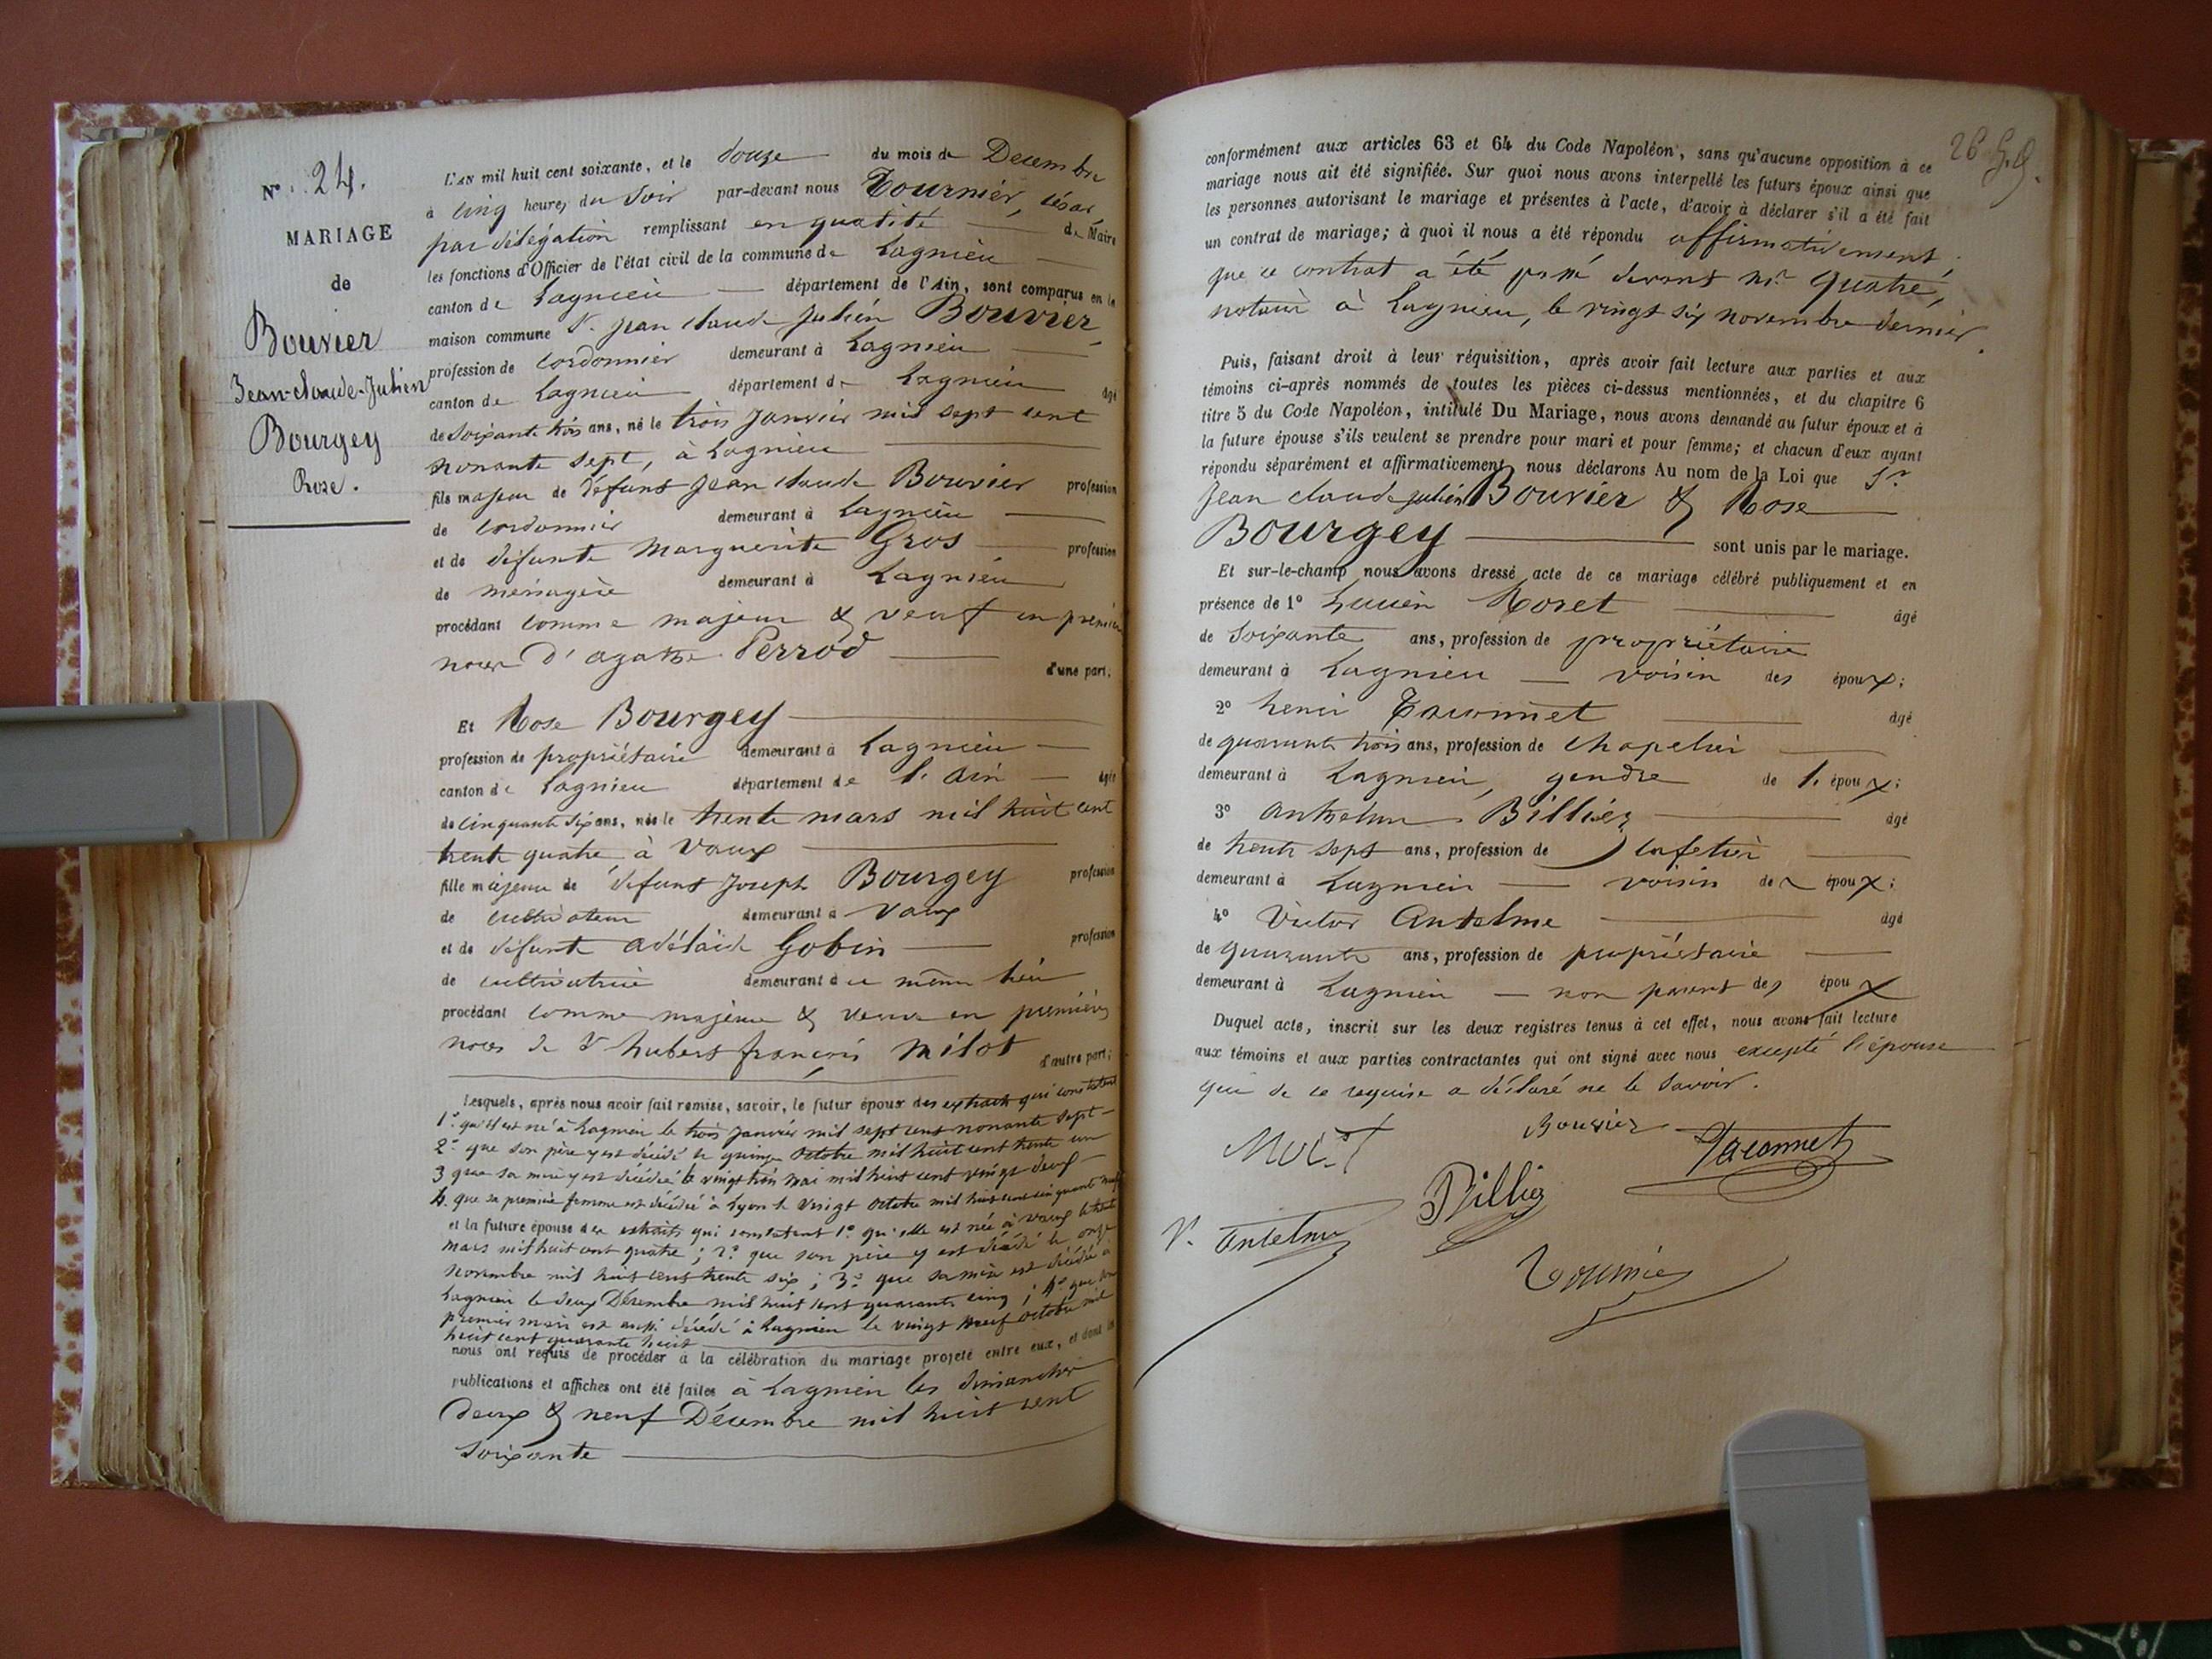 N° 24.
MARIAGE
de
Bouvier
Jean-claude-Julien
Bourgey
Rose.
L'AN mil huit cent soixante, et le douze du mois de Decembre
à cinq heures du soir par-devant nous Tournier, César,
par délégation remplissant en qualité de Maire
les fonctions d'Officier de l'état civil de la commune de Lagnieu
canton de Lagnieu département de l'Ain, sont comparus en la
maison commune Sr. Jean Claude Julien Bouvier,
profession de Cordonnier demeurant à Lagnieu
canton de Lagnieu département de Lagnieu âgé
de soixante trois ans, né le trois janvier mil sept cent
nonante sept, à Lagnieu
fils majeur de défunt Jean claude Bouvier profession
de Cordonnier demeurant à Lagnieu
et de défunte Marguerite Gros profession
de ménagère demeurant à Lagnieu
procédant comme majeur & veuf en premières
noces d'agathe Perrod d'une part;
Et Rose Bourgey
profession de propriétaire demeurant à Lagnieu
canton de Lagnieu département de l'Ain âgée
de cinquante six ans, née le trente mars mil huit cent
trente quatre à Vaux
fille majeure de défunt Joseph Bourgey profession
de cultivateur demeurant à Vaux
et de défunte Adélaïde Gobin profession
de cultivatrice demeurant au même lieu
procédant comme majeure & veuve en premières
noces de Sr hubert françois Milot d'autre part;
Lesquels, après nous avoir fait remise, savoir, le futur époux des extraits qui constatent
1° qu'il est né à Lagnieu le trois janvier mil sept cent nonante sept
2° que son père y est décédé le quinze octobre mil huit cent trente un
3 que sa mère y est décédée le vingt trois mai mil huit cent vingt deux
4. que sa première femme est décédée à Lyon le vingt octobre mil huit cent cinquante neuf
et la future épouse des extraits qui constatent 1° qu'elle est née à Vaux le trente
mars mil huit cent quatre ; 2° que son père y est décédé le onze
novembre mil huit cent trente six ; 3° que sa mère est décédée à
Lagnieu le deux Décembre mil huit cent quarante cinq ; 4° que son
premier mari est aussi décédé à Lagnieu le vingt neuf octobre mil
huit cent quarante huit
nous ont requis de procéder à la célébration du mariage projeté entre eux, et dont les
publications et affiches ont été faites à Lagnieu les dimanches
deux & neuf Décembre mil huit cent
soixante
26
conformément aux articles 63 et 64 du Code Napoléon, sans qu'aucune opposition à ce
mariage nous ait été signifiée. Sur quoi nous avons interpellé les futurs époux ainsi que
les personnes autorisant le mariage et présentes à l'acte, d'avoir à déclarer s'il a été fait
un contrat de mariage; à quoi il nous a été répondu affirmativement,
que ce contrat a été passé devant Mr. Quatre,
notaire à Lagnieu, le vingt six novembre dernier.
Puis, faisant droit à leur réquisition, après avoir fait lecture aux parties et aux
témoins ci-après nommés de toutes les pièces ci-dessus mentionnées, et du chapitre 6
titre 5 du Code Napoléon, intitulé Du Mariage, nous avons demandé au futur époux et à
la future épouse s'ils veulent se prendre pour mari et pour femme; et chacun d'eux ayant
répondu séparément et affirmativement, nous déclarons Au nom de la Loi que Sr
Jean Claude Julien Bouvier & Rose
Bourgey sont unis par le mariage.
Et sur-le-champ nous avons dressé acte de ce mariage célébré publiquement et en
présence de 1° Lucien Moret âgé
de soixante ans, profession de propriétaire
demeurant à Lagnieu voisin des époux;
2° henri Taconnet âgé
de quarante trois ans, profession de chapelier
demeurant à Lagnieu, gendre de l'époux;
3° Anthelme Billiez âgé
de trente sept ans, profession de cafetier
demeurant à Lagnieu voisin des époux;
4° Victor Antelme âgé
de quarante ans, profession de propriétaire
demeurant à Lagnieu non parent des époux
Duquel acte, inscrit sur les deux registres tenus à cet effet, nous avons fait lecture
aux témoins et aux parties contractantes qui ont signé avec nous excepté l'épouse
qui de ce requise a déclaré ne le savoir.
Bouvier
Taconnet
Billiez
V. Antelme
Tournier